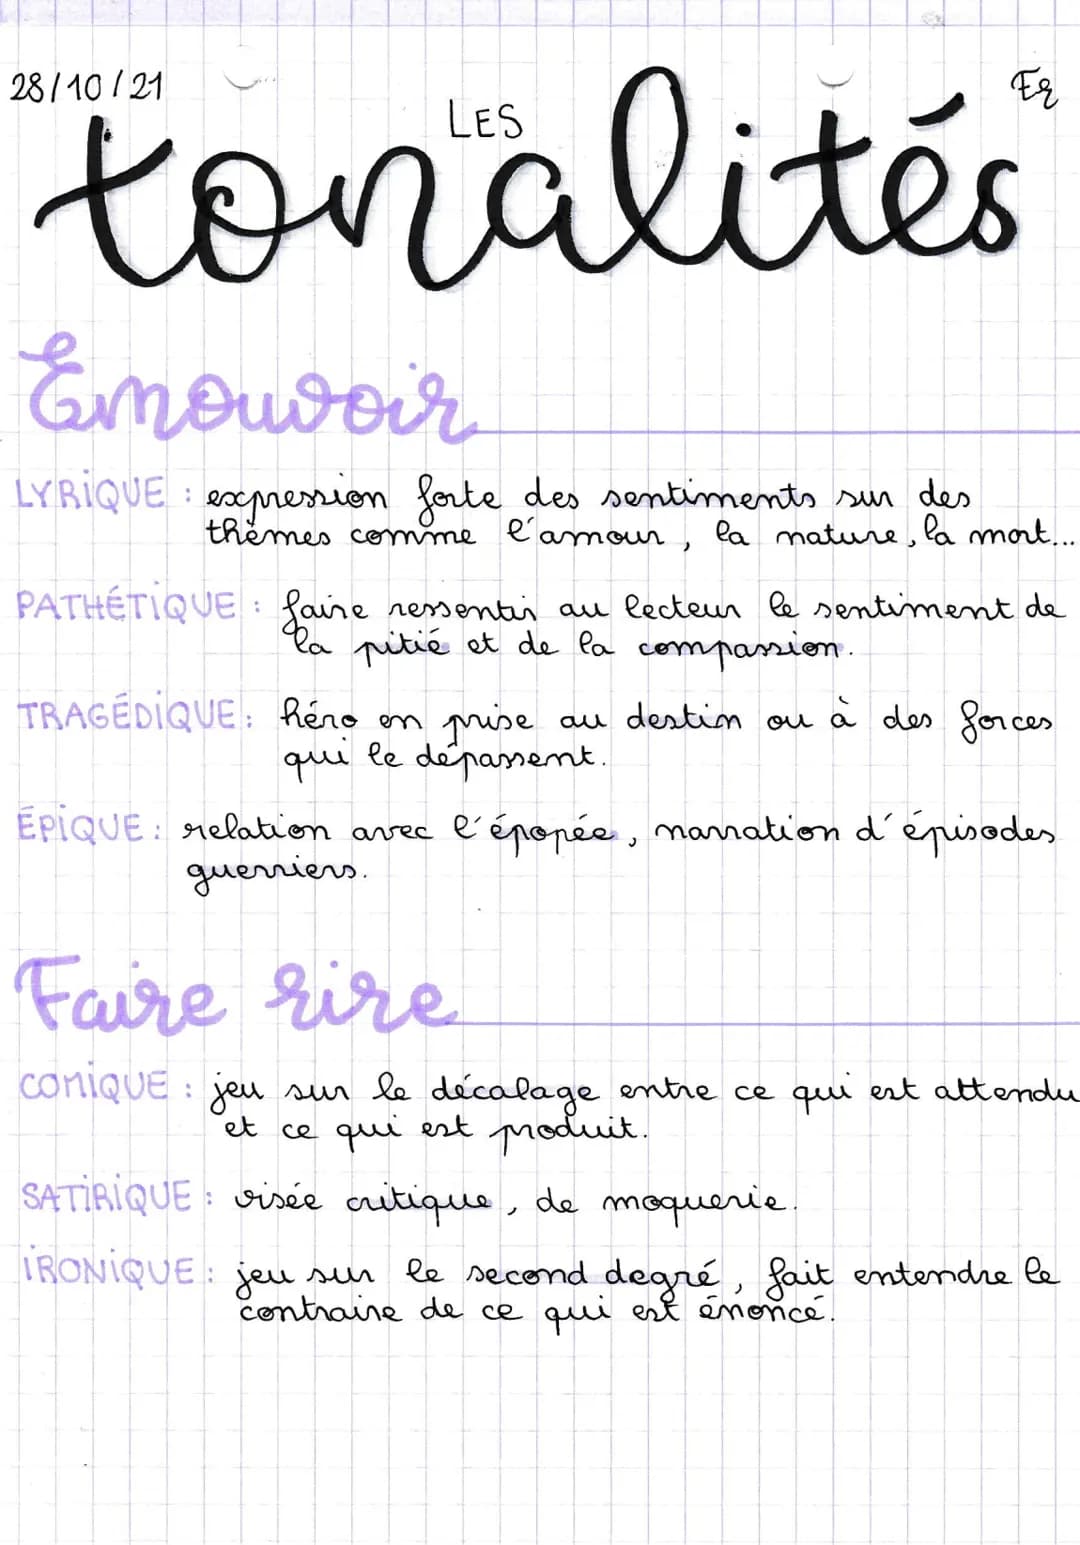 28/10/21
Fr
LES
tonalités
Émouvoir
LYRIQUE : expression forte des sentiments sur des
thèmes comme l'amour, la nature, la mort...
PATHÉTIQUE : faire ressentir au lecteur le sentiment de
la pitié et de la compassion.
TRAGÉDIQUE : héro en prise au destin ou à des forces
qui le dépassent.
ÉPIQUE : relation avec l'épopée, narration d'épisodes
guerriers.
Faire rire
COMIQUE : jeu sur le décalage entre ce qui est attendu
et ce qui est produit.
SATIRIQUE : visée critique, de moquerie.
IRONIQUE : jeu sur le second degré, fait entendre le
contraire de ce qui est énoncé.